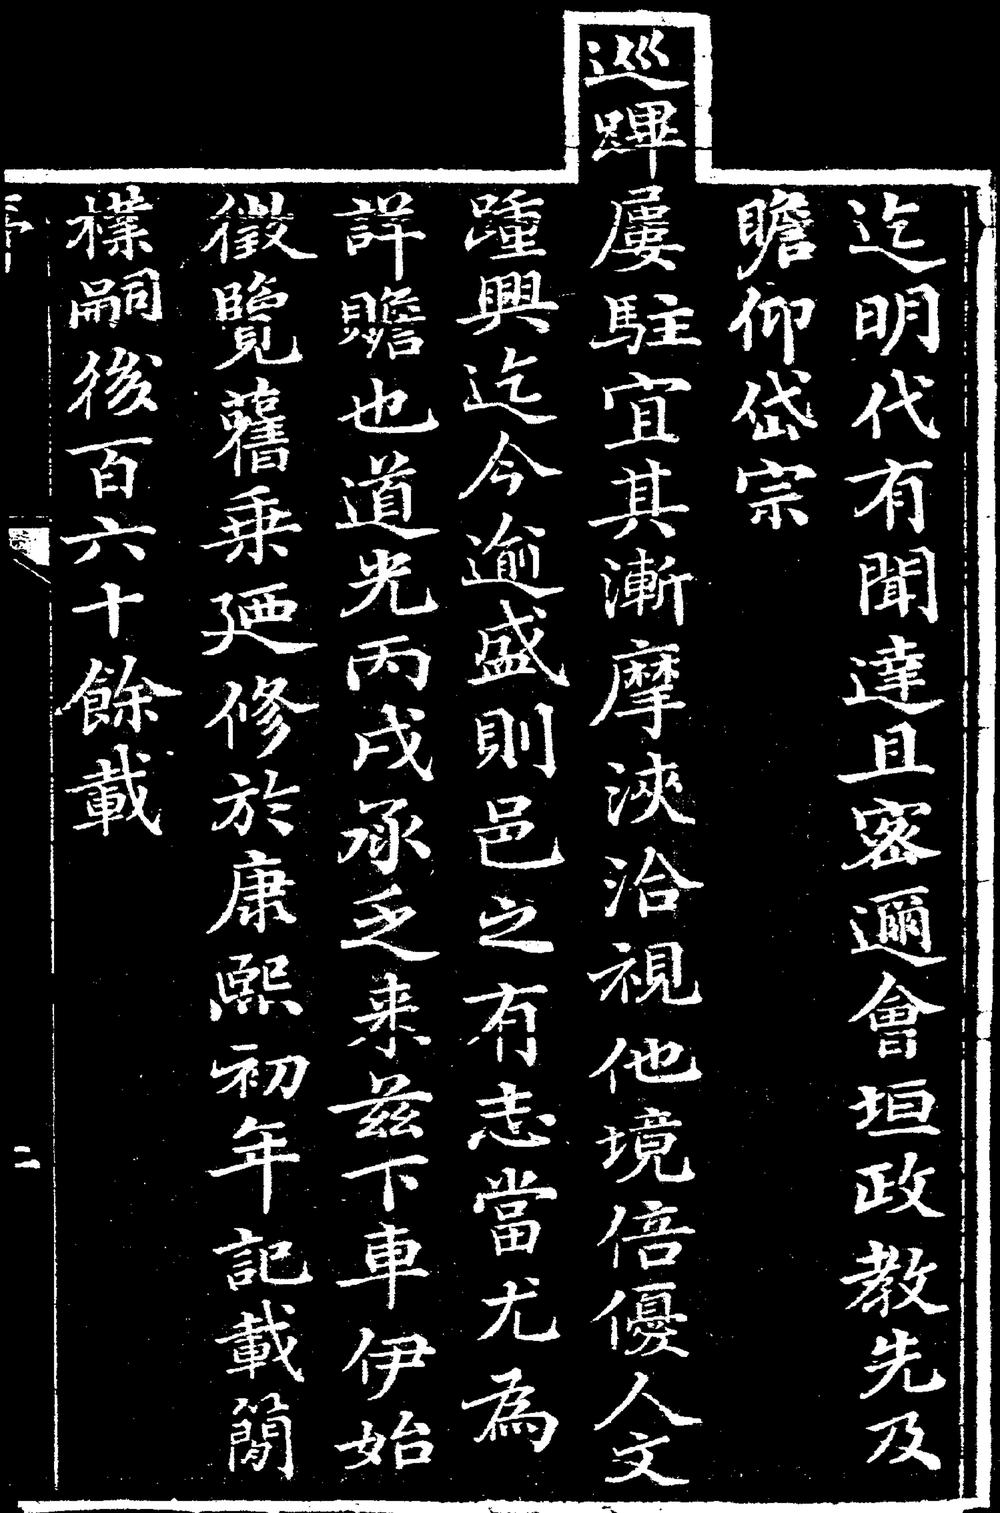 迄明代有聞達且密邇會垣政教先及
瞻仰岱宗
巡蹕屢駐宜其漸摩浹洽視他境倍優人文
踵興迄今逾盛則邑之有志當尤為
詳贍也道光丙戌承乏来兹下車伊始
徵覽舊乗廼修於康熙初年記載簡
樸嗣後百六十餘載
二